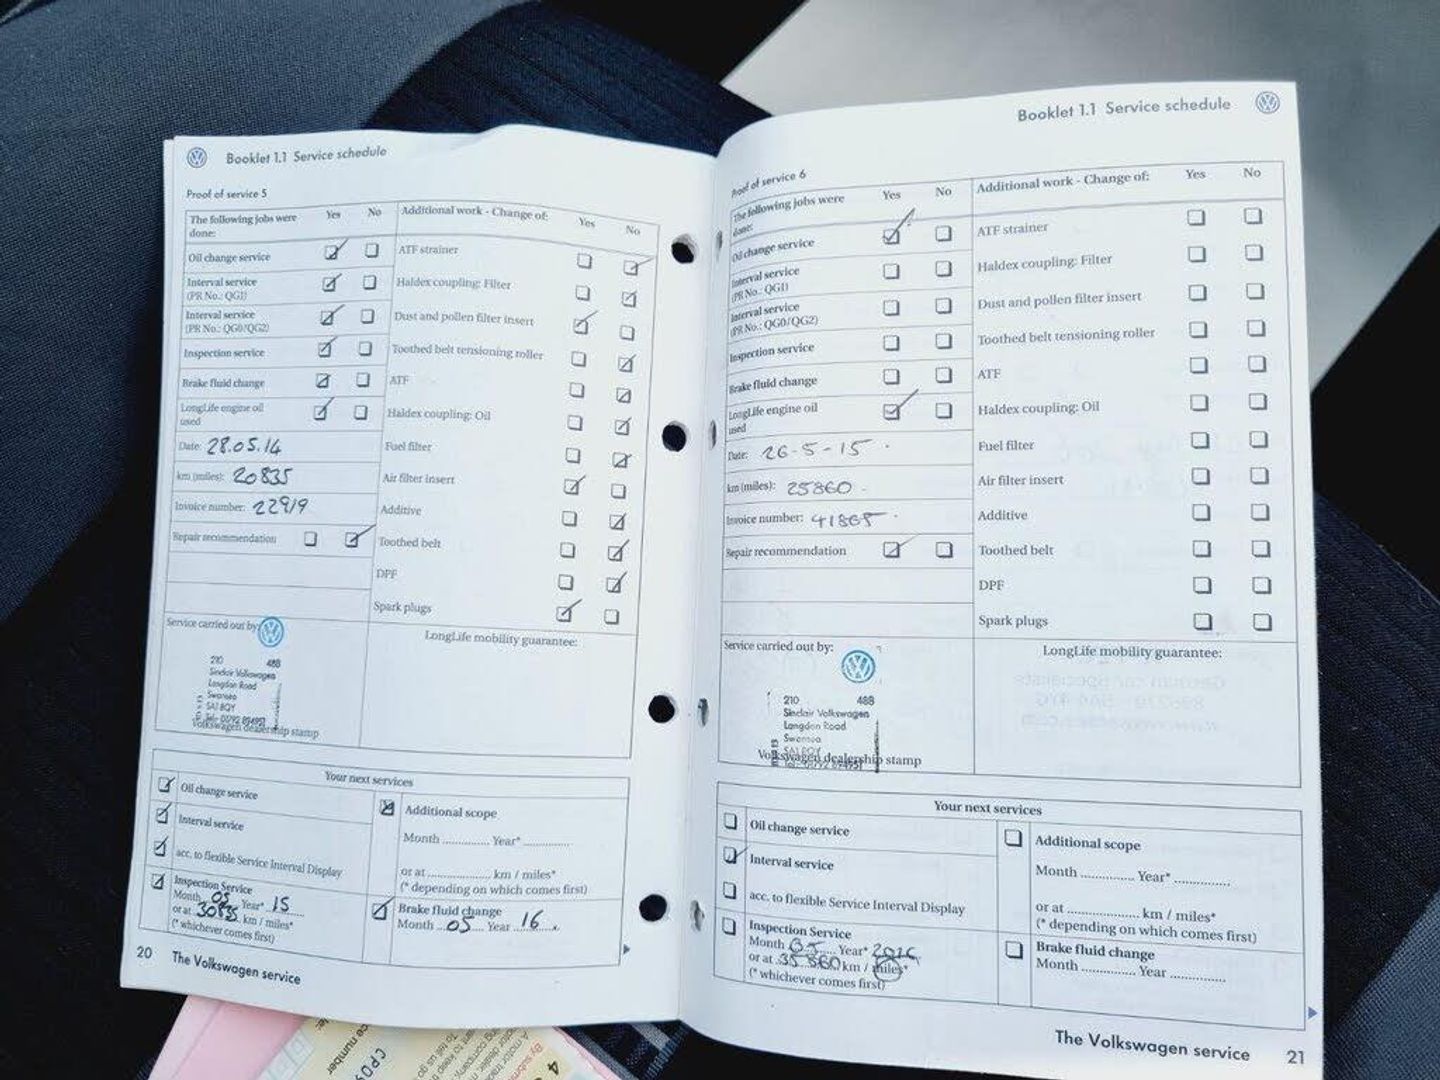 Booklet 1.1 Service schedule
Proof of service 5
The following jobs were done: Yes No Additional work - Change of: Yes No
Oil change service
ATF strainer
Interval service
(PR No.: QG1)
Haldex coupling: Filter
Interval service
(PR No.: QG0/QG2)
Dust and pollen filter insert
Inspection service
Toothed belt tensioning roller
Brake fluid change
ATF
LongLife engine oil used
Haldex coupling: Oil
Date: 28.05.14
Fuel filter
km (miles): 20835
Air filter insert
Invoice number: 22919
Additive
Repair recommendation
Toothed belt
DPF
Spark plugs
Service carried out by:
LongLife mobility guarantee:
210 488
Sinclair Volkswagen
Langdon Road
Swansea
SA1 8QY
Tel: 01792 894951
Volkswagen dealership stamp
Your next services
Oil change service
Interval service
acc. to flexible Service Interval Display
Inspection Service
Month 05 Year* 15
or at 30835 km / miles*
(* whichever comes first)
Additional scope
Month .............. Year* ..............
or at .................... km / miles*
(* depending on which comes first)
Brake fluid change
Month ...05.... Year ...16....
20 The Volkswagen service
Booklet 1.1 Service schedule
Proof of service 6
The following jobs were done: Yes No Additional work - Change of: Yes No
Oil change service
ATF strainer
Interval service
(PR No.: QG1)
Haldex coupling: Filter
Interval service
(PR No.: QG0/QG2)
Dust and pollen filter insert
Inspection service
Toothed belt tensioning roller
Brake fluid change
ATF
LongLife engine oil used
Haldex coupling: Oil
Date: 26-5-15
Fuel filter
km (miles): 25860
Air filter insert
Invoice number: 41865
Additive
Repair recommendation
Toothed belt
DPF
Spark plugs
Service carried out by:
LongLife mobility guarantee:
210 488
Sinclair Volkswagen
Langdon Road
Swansea
SA1 8QY
Tel: 01792 894951
Volkswagen dealership stamp
Your next services
Oil change service
Interval service
acc. to flexible Service Interval Display
Inspection Service
Month 05 Year* 2016
or at 35860 km / miles*
(* whichever comes first)
Additional scope
Month .............. Year* ..............
or at .................... km / miles*
(* depending on which comes first)
Brake fluid change
Month .............. Year ..............
The Volkswagen service 21